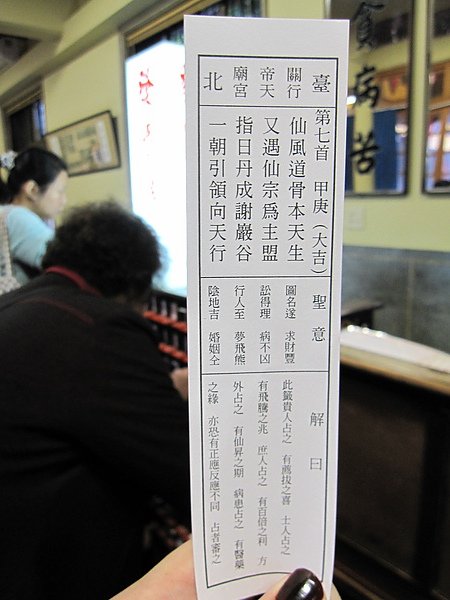 臺
關行
帝天
廟宮
北
第七首 甲庚（大吉）
仙風道骨本天生
又遇仙宗為主盟
指日丹成謝巖谷
一朝引領向天行
聖意
圖名遂 求財豐
訟得理 病不凶
行人至 夢飛熊
陰地吉 婚姻仝
解曰
此籤貴人占之 有薦拔之喜 士人占之
有飛騰之兆 庶人占之 有百倍之利 方
外占之 有仙昇之期 病患占之 有醫藥
之緣 亦恐有正應反應不同 占者審之
貧病苦